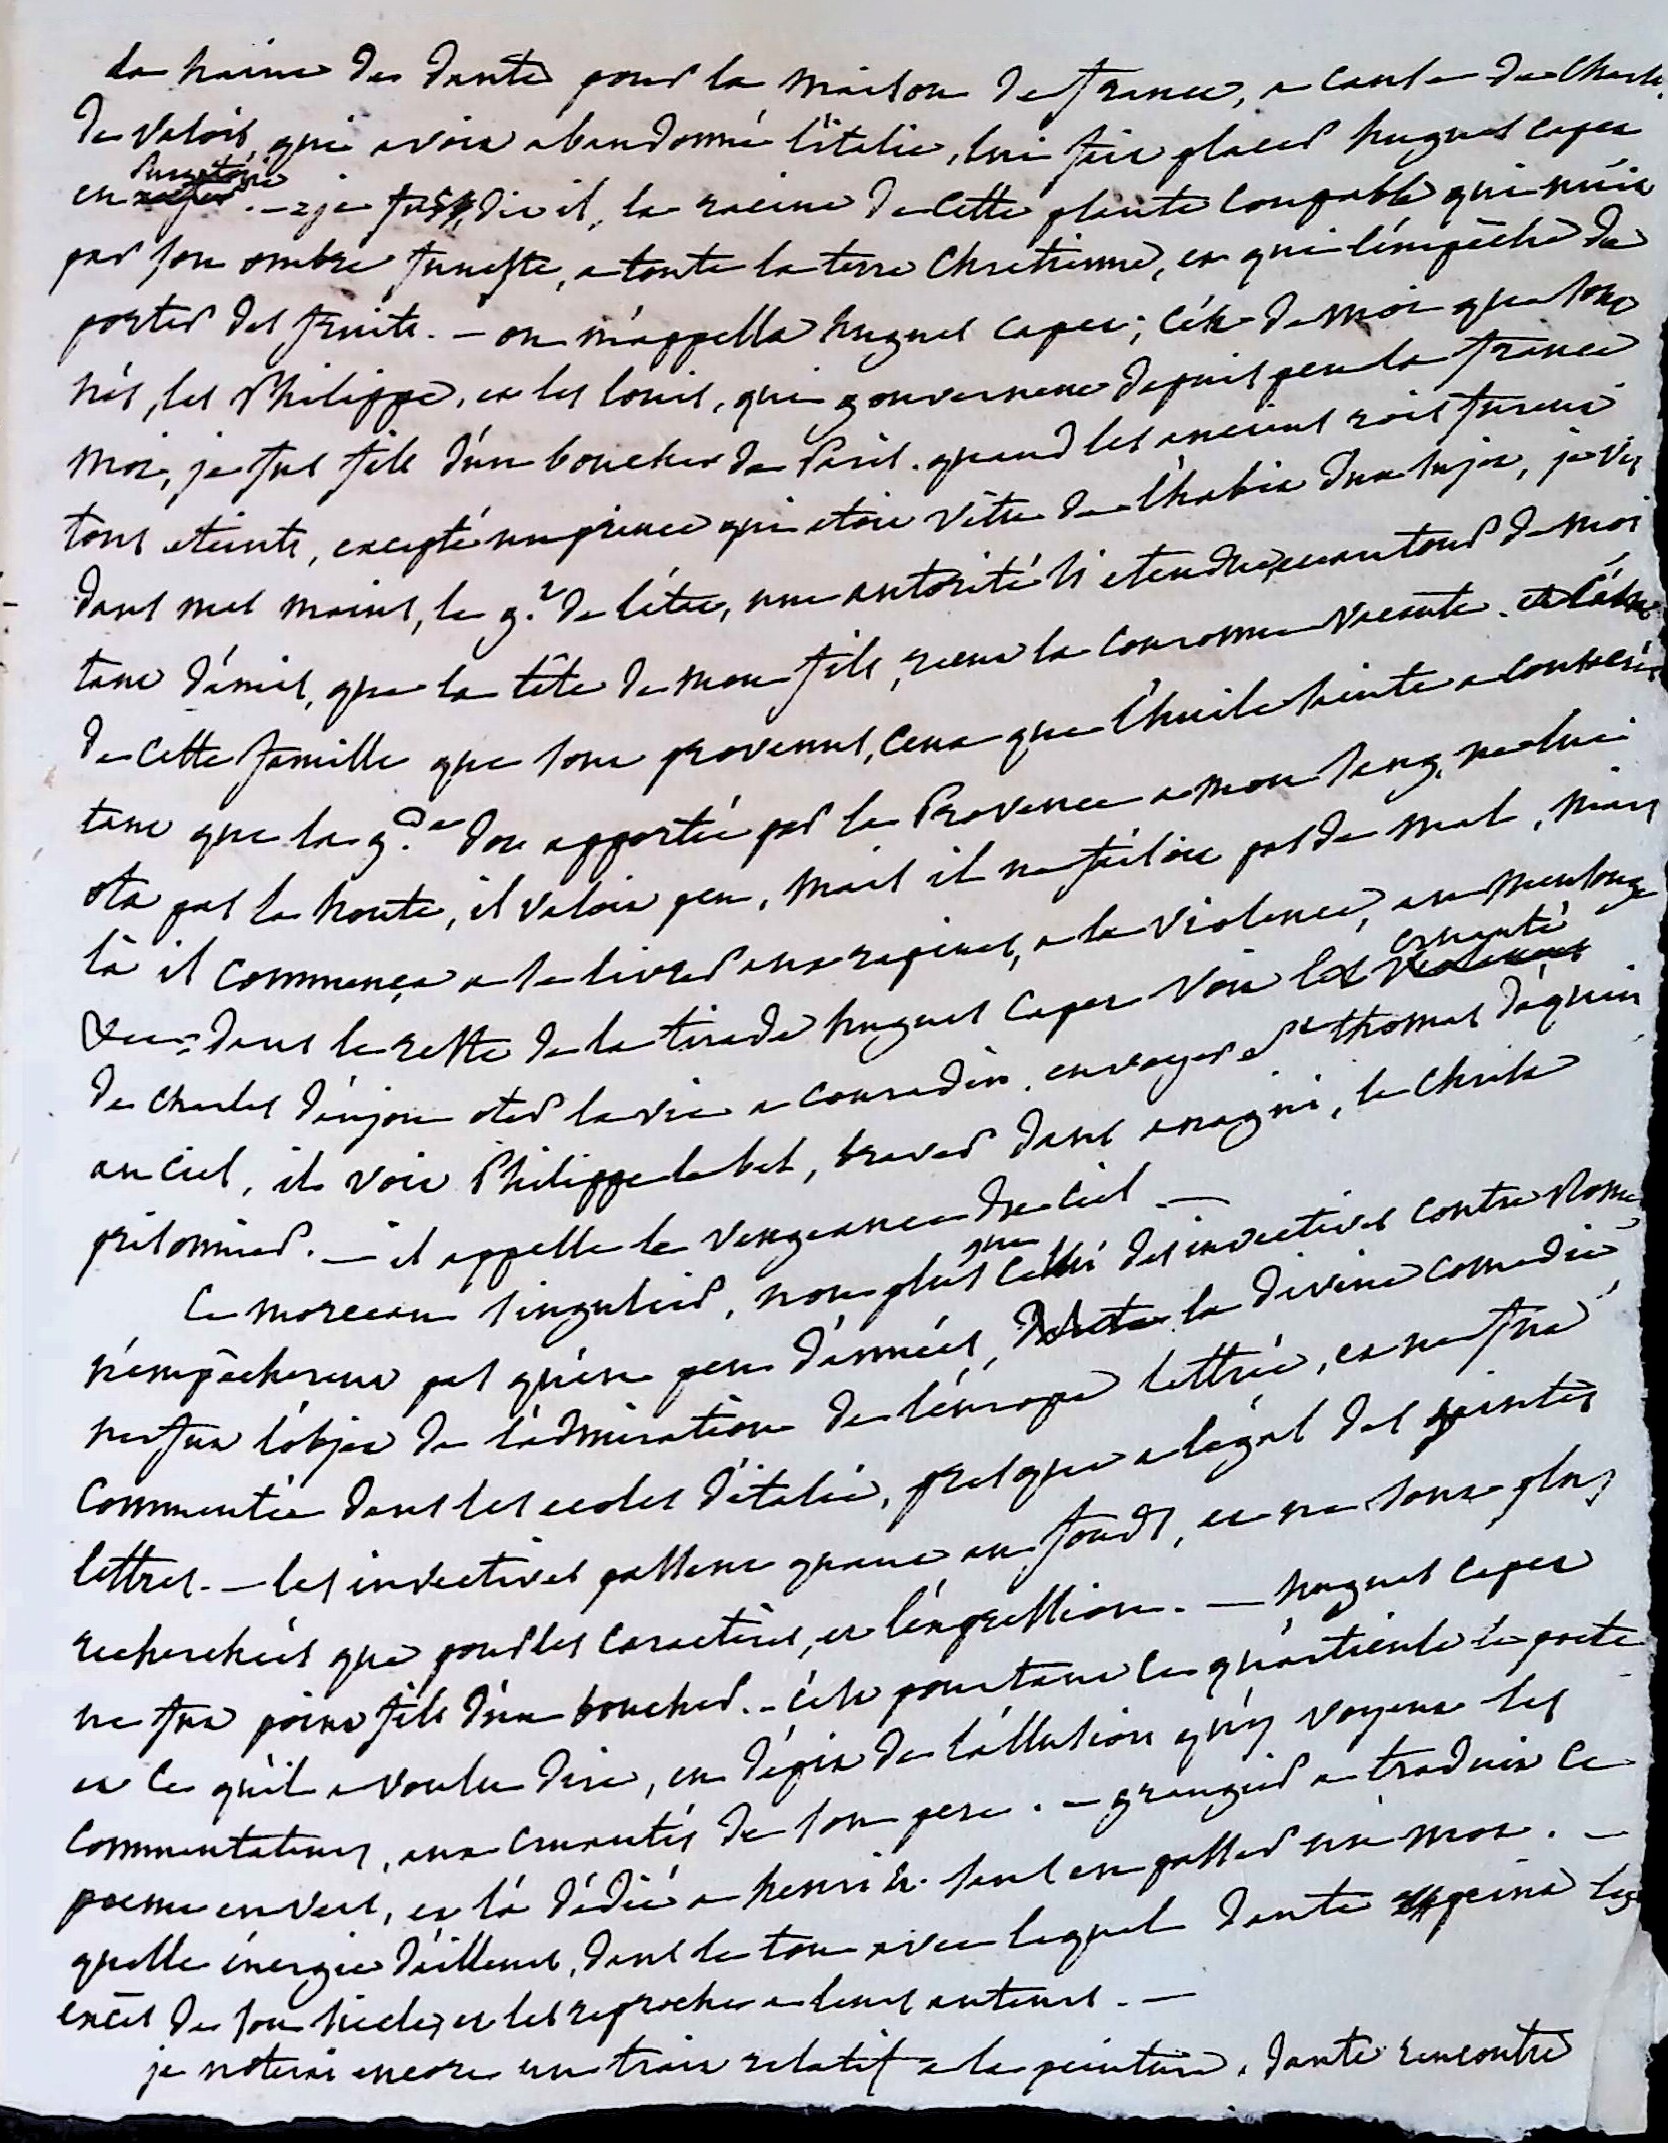 la haine de dante pour la maison de france, a cause de Charles
de Valois, qui avoit abandonné l'italie, lui fait placer hugues capet
en purgatoire. — je fus, dit il, la racine de cette plante coupable qui nuit
par son ombre funeste, a toute la terre Chretienne, et qui l'empêche de
porter des fruits. — on m'appella hugues capet; c'est de moi que sont
nés, les Philippe, et les louis, qui gouvernent depuis peu la france
moi, je fus fils d'un boucher de Paris. quand les anciens rois furent
tous eteints, excepté un prince qui etoit vêtu de l'habit d'un sujet, je vis
dans mes mains, le g.t de l'état, une autorité si etendue, et autour de moi
tant d'amis, que la tête de mon fils, reçut la couronne vacante. c'est
de cette famille que sont provenus, ceux que l'huile sainte a consacrés
tant que la g.de dot apportée par la Provence a mon sang, ne lui
ota pas la honte, il valoit peu, mais il ne faisoit pas de mal, mais
là il commença a se livrer aux rapines, a la violence, au mensonge
&c. dans le reste de la tirade hugues Capet voit la cruauté
de charles d'anjou oter la vie a conradin. envoyer St thomas d'aquin
au ciel, il voit Philippe le bel, braver dans anagni, le Christ
prisonnier. — il appelle la vengeance du ciel —
Ce morceau singulier, non plus que celui des invectives contre Rome
n'empêcherent pas qu'en peu d'années, la divine comedie
ne fut l'objet de l'admiration de l'europe lettrée, et ne fut
commentée dans les ecoles d'italie, presque a l'egal des saintes
lettres. — les invectives passent quant au fonds, et ne sont plus
recherchées que pour les caracteres, et l'expression. — hugues Capet
ne fut point fils d'un boucher. — c'est pourtant ce qu'articule le poete
et ce qu'il a voulu dire, en dépit de l'allusion qu'y voyent les
commentateurs, aux cruautés de son pere. — grangier a traduit ce
poeme en vers, et l'a dédié a henri 4. sans en passer un mot. —
quelle énergie d'ailleurs, dans le ton avec lequel dante peint les
excès de son siecle, et les reproche a leurs auteurs. —
je noterai encore un trait relatif a la peinture. dante rencontre